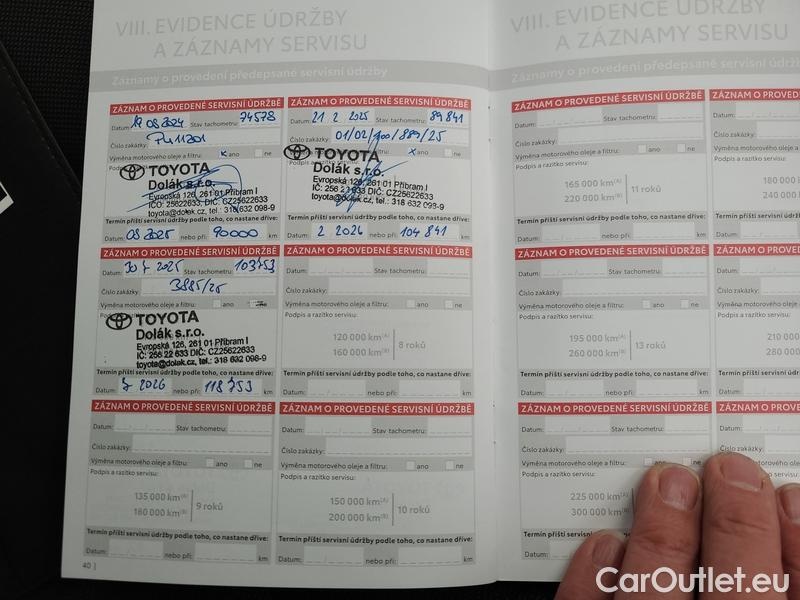 VIII. EVIDENCE ÚDRŽBY
A ZÁZNAMY SERVISU
Záznamy o provedení předepsané servisní údržby
ZÁZNAM O PROVEDENÉ SERVISNÍ ÚDRŽBĚ
Datum: 19 08 2024 Stav tachometru: 74578
Číslo zakázky:
Výměna motorového oleje a filtru: x ano ne
Podpis a razítko servisu:
TOYOTA
Dolák s.r.o.
Evropská 126, 261 01 Příbram I
IČO: 25622633, DIČ: CZ25622633
toyota@dolak.cz, tel.: 318 632 098-9
Termín příští servisní údržby podle toho, co nastane dříve:
Datum: 08 2025 nebo při: 90000 km
ZÁZNAM O PROVEDENÉ SERVISNÍ ÚDRŽBĚ
Datum: 21 2 2025 Stav tachometru: 89 841
Číslo zakázky: 01/02/700/889/25
Výměna motorového oleje a filtru: x ano ne
Podpis a razítko servisu:
TOYOTA
Dolák s.r.o.
Evropská 126, 261 01 Příbram I
IČ: 256 22 633 DIČ: CZ25622633
toyota@dolak.cz, tel.: 318 632 098-9
Termín příští servisní údržby podle toho, co nastane dříve:
Datum: 2 2026 nebo při: 104 841 km
ZÁZNAM O PROVEDENÉ SERVISNÍ ÚDRŽBĚ
Datum: 30 7 2025 Stav tachometru: 103753
Číslo zakázky: 3885/25
Výměna motorového oleje a filtru: ano ne
Podpis a razítko servisu:
TOYOTA
Dolák s.r.o.
Evropská 126, 261 01 Příbram I
IČ: 256 22 633 DIČ: CZ25622633
toyota@dolak.cz, tel.: 318 632 098-9
Termín příští servisní údržby podle toho, co nastane dříve:
Datum: 7 2026 nebo při: 118 753 km
ZÁZNAM O PROVEDENÉ SERVISNÍ ÚDRŽBĚ
Datum: Stav tachometru:
Číslo zakázky:
Výměna motorového oleje a filtru: ano ne
Podpis a razítko servisu:
120 000 km(A)
160 000 km(B)
8 roků
Termín příští servisní údržby podle toho, co nastane dříve:
Datum: nebo při: km
ZÁZNAM O PROVEDENÉ SERVISNÍ ÚDRŽBĚ
Datum: Stav tachometru:
Číslo zakázky:
Výměna motorového oleje a filtru: ano ne
Podpis a razítko servisu:
135 000 km(A)
180 000 km(B)
9 roků
Termín příští servisní údržby podle toho, co nastane dříve:
Datum: nebo při: km
ZÁZNAM O PROVEDENÉ SERVISNÍ ÚDRŽBĚ
Datum: Stav tachometru:
Číslo zakázky:
Výměna motorového oleje a filtru: ano ne
Podpis a razítko servisu:
150 000 km(A)
200 000 km(B)
10 roků
Termín příští servisní údržby podle toho, co nastane dříve:
Datum: nebo při: km
40
VIII. EVIDENCE ÚDRŽBY
A ZÁZNAMY SERVISU
Záznamy o provedení předepsané servisní údržby
ZÁZNAM O PROVEDENÉ SERVISNÍ ÚDRŽBĚ
Datum: Stav tachometru:
Číslo zakázky:
Výměna motorového oleje a filtru: ano ne
Podpis a razítko servisu:
165 000 km(A)
220 000 km(B)
11 roků
Termín příští servisní údržby podle toho, co nastane dříve:
Datum: nebo při: km
180 000
240 000
ZÁZNAM O PROVEDENÉ SERVISNÍ ÚDRŽBĚ
Datum: Stav tachometru:
Číslo zakázky:
Výměna motorového oleje a filtru: ano ne
Podpis a razítko servisu:
195 000 km(A)
260 000 km(B)
13 roků
Termín příští servisní údržby podle toho, co nastane dříve:
Datum: nebo při: km
210 000
280 000
ZÁZNAM O PROVEDENÉ SERVISNÍ ÚDRŽBĚ
Datum: Stav tachometru:
Číslo zakázky:
Výměna motorového oleje a filtru: ano
Podpis a razítko servisu:
225 000 km(A)
300 000 km(B)
Termín příští servisní údržby
Datum:
Číslo zakázky:
CarOutlet.eu